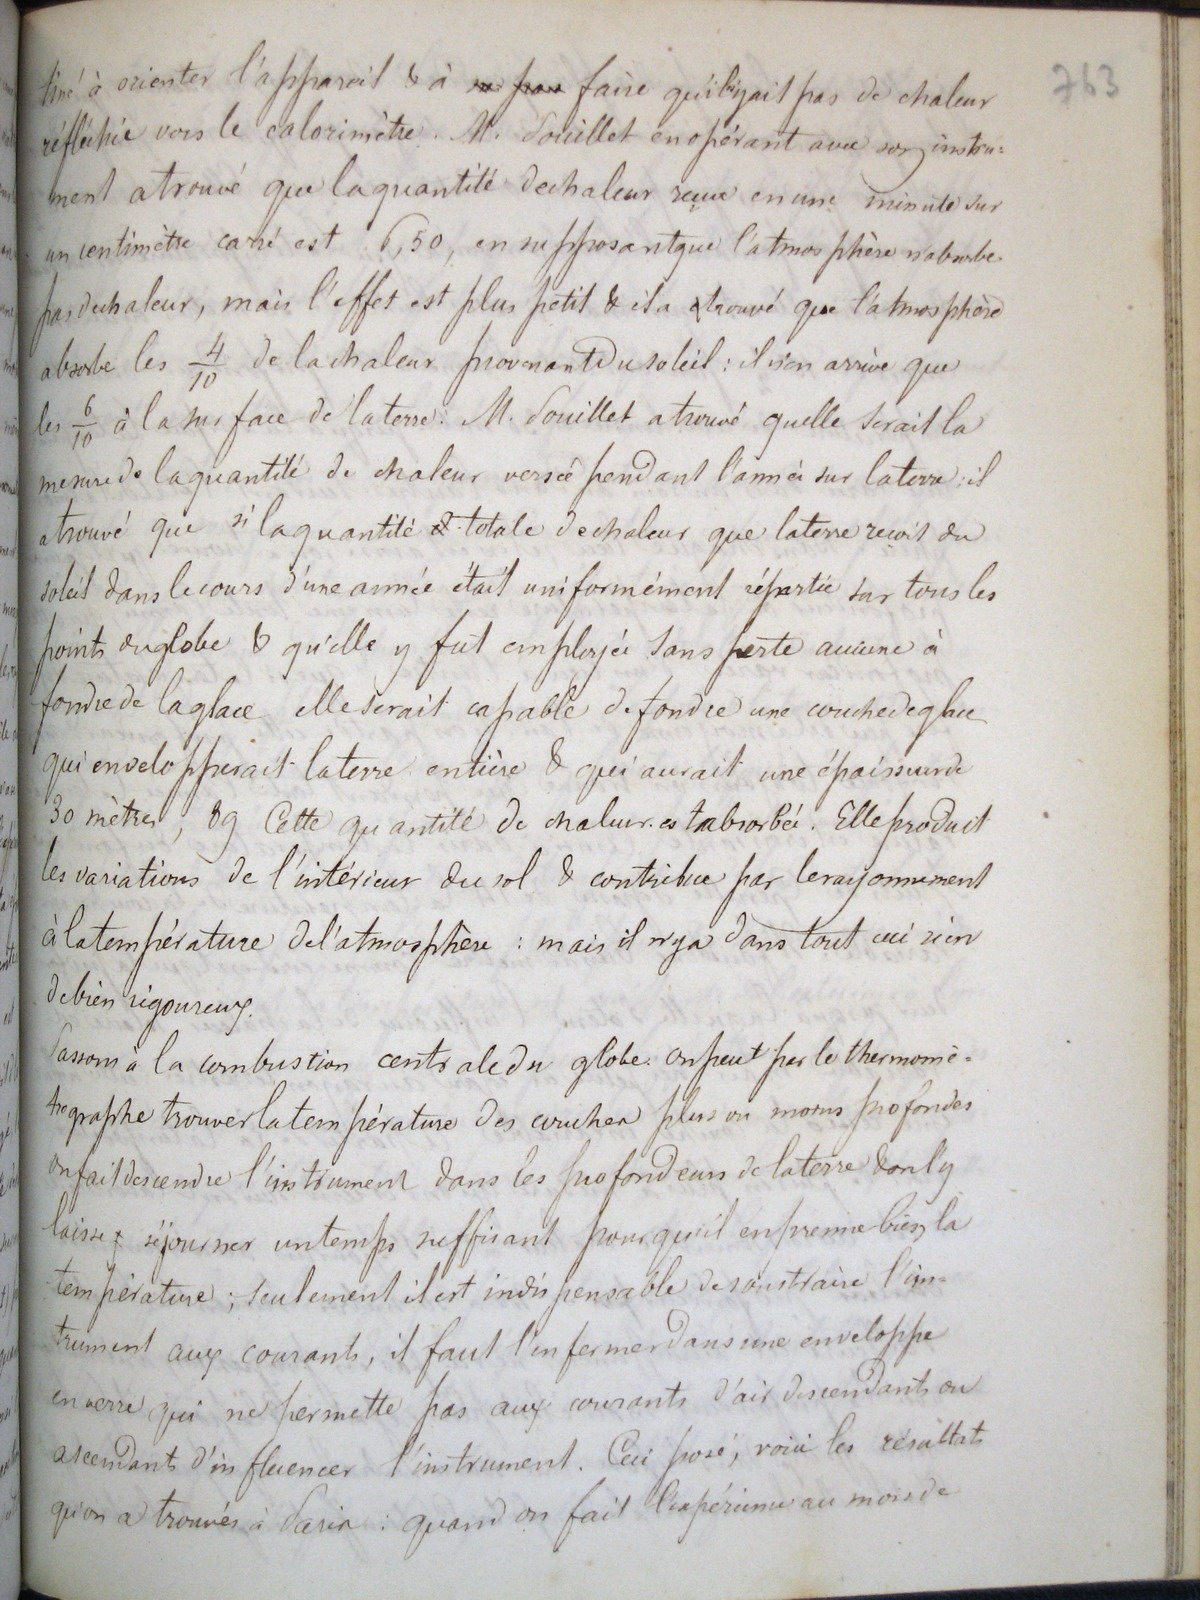 763
tiné à orienter l'appareil & à ne pas faire qu'il n'y ait pas de chaleur
réfléchie vers le calorimètre. M. Pouillet en opérant avec son instru=
ment a trouvé que la quantité de chaleur reçue en une minute sur
un centimètre carré est 6,50, en supposant que l'atmosphère n'absorbe
pas de chaleur, mais l'effet est plus petit & il a trouvé que l'atmosphère
absorbe les 4/10 de la chaleur provenant du soleil : il n'en arrive que
les 6/10 à la surface de la terre. M. Pouillet a trouvé quelle serait la
mesure de la quantité de chaleur versée pendant l'année sur la terre : il
a trouvé que si la quantité totale de chaleur que la terre reçoit du
soleil dans le cours d'une année était uniformément répartie sur tous les
points du globe & qu'elle y fut employée sans perte aucune à
fondre de la glace elle serait capable de fondre une couche de glace
qui envelopperait la terre entière & qui aurait une épaisseur de
30 mètres, 89 Cette quantité de chaleur est absorbée. Elle produit
les variations de l'intérieur du sol & contribue par le rayonnement
à la température de l'atmosphère : mais il n'y a dans tout ceci rien
de bien rigoureux.
Passons à la combustion centrale du globe. on peut par le thermomè=
trographe trouver la température des couches plus ou moins profondes
on fait descendre l'instrument dans les profondeurs de la terre & on l'y
laisse séjourner un temps suffisant pour qu'il en prenne bien la
température ; seulement il est indispensable de soustraire l'ins=
trument aux courants, il faut l'enfermer dans une enveloppe
en verre qui ne permette pas aux courants d'air descendants ou
ascendants d'influencer l'instrument. Ceci posé, voici les résultats
qu'on a trouvés à Paris : quand on fait l'expérience au mois de